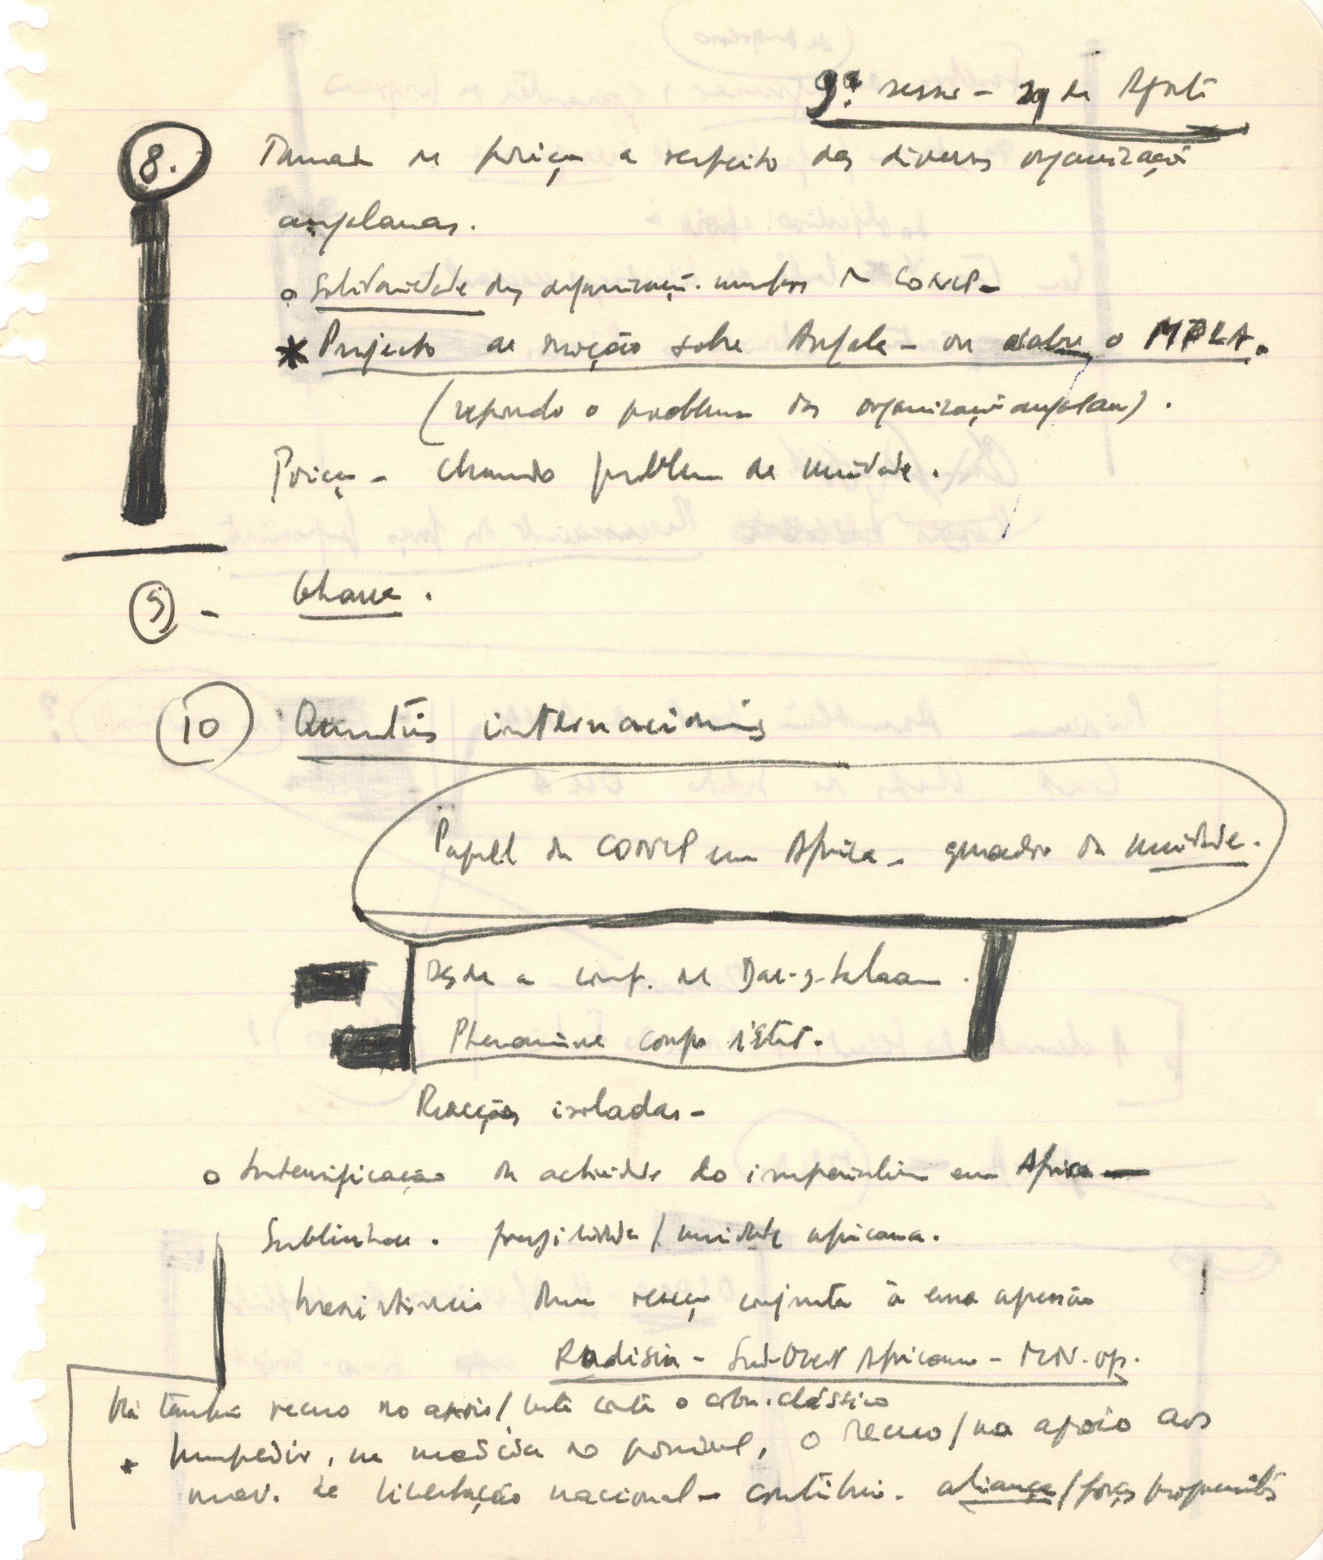 9ª sessão - 29 de Agosto
8. Tomada de posição a respeito das diversas organizações
angolanas.
o Solidariedade das organizaç. membros da CONCP -
* Projecto de moção sobre Angola - ou sobre o MPLA.
(repondo o problema das organizações angolanas).
Posição - chamado problema de unidade.
9 - Ghana.
10 Questões internacionais
Papel da CONCP em África - quadro da unidade.
Desde a conf. de Dar-es-Salaam.
Phénomène coups d'État.
Reacções isoladas -
o Intensificação da actividade do imperialismo em África -
Sublinhar. fragilidade / unidade africana.
Inexistência duma reacção conjunta à essa agressão
Rodésia - Sud-Ouest Africano -
Há também recuo no apoio / luta contra o colon. clássico
* Impedir, na medida do possível, o recuo / no apoio aos
mov. de libertação nacional - contribui. aliança / forças progressistas